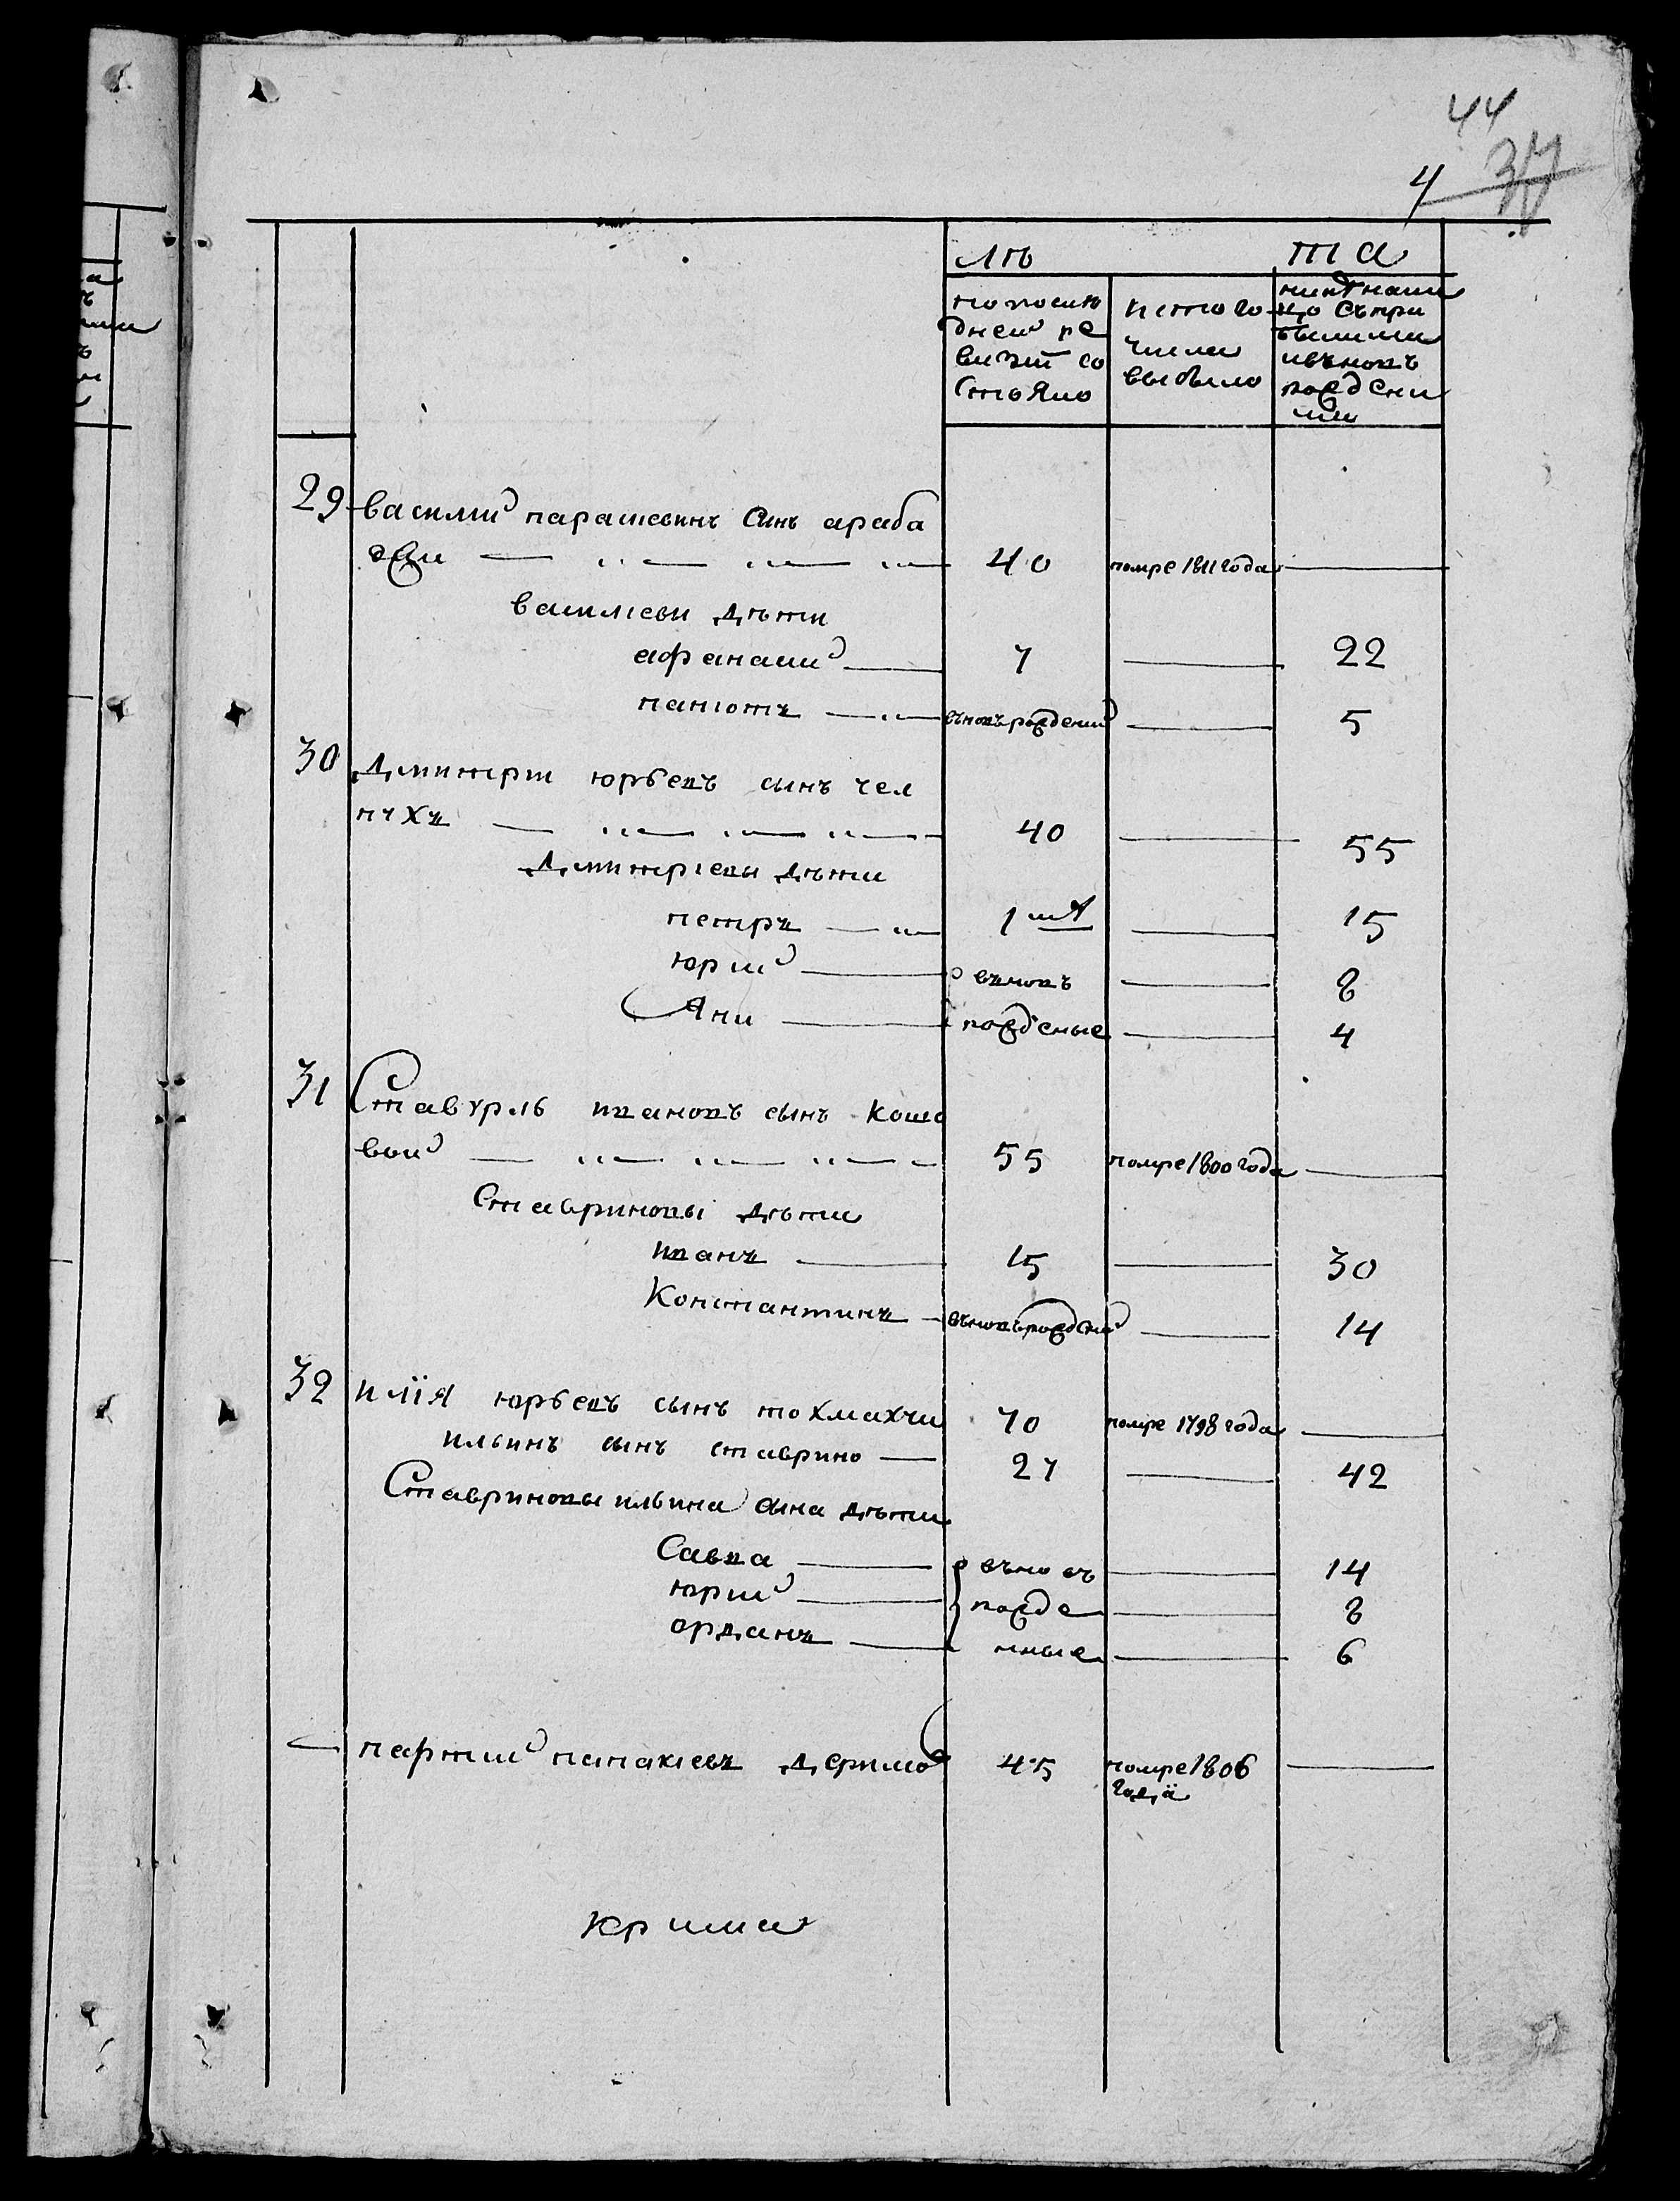 44
4 37
лѣ та
по послѣ
дней ре
визіи со
стояло
ис того
числа
выбыло
ныне на ли
цо съ при
былими
и вънов
рожден
ными
29 василий парашевинъ сынъ араба
джи 40 помре 1811 года
василіеви дѣти
афанасий 7 22
паніотъ въновъ рожденый 5
30 Дмитрій юрьевъ сынъ чел
пухъ 40 55
Дмитріевы дѣти
петръ 1 15
юрий въновъ 8
Яни рожденые 4
31 Ставурль ивановъ сынъ кошо
вый 55 помре 1800 года
Ставриновы дѣти
иванъ 15 30
Константинъ въновърожденый 14
32 илїя юрьевъ сынъ тохмахчи 70 помре 1798 года
ильинъ сынъ ставрино 27 42
Ставриновы ильина сына дѣти
Савва въновъ 14
юрий рожде 8
орданъ нные 6
партий папакіевъ Дерило 45 помре 1806
года
Крими